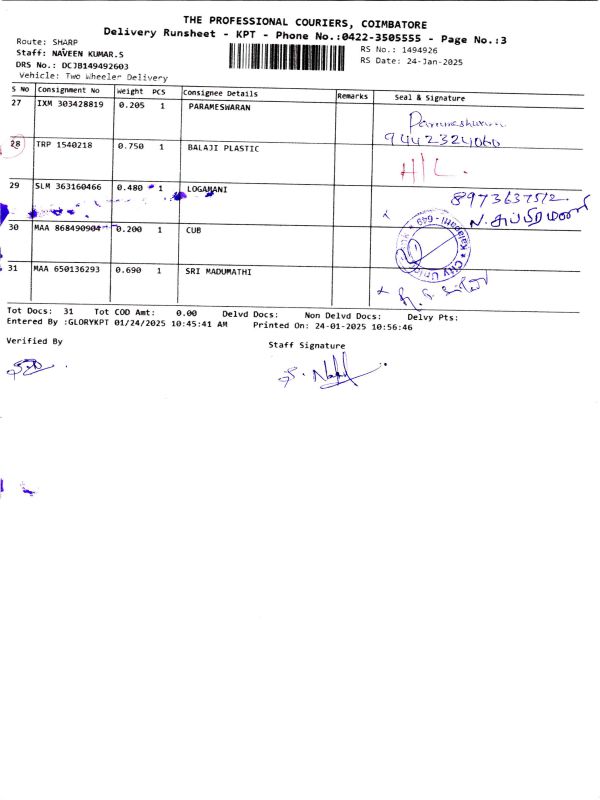 THE PROFESSIONAL COURIERS, COIMBATORE
Delivery Runsheet - KPT - Phone No.:0422-3505555 - Page No.:3
Route: SHARP
RS No.: 1494926
Staff: NAVEEN KUMAR.S
RS Date: 24-Jan-2025
DRS No.: DCJB149492603
Vehicle: Two Wheeler Delivery
S No Consignment No Weight PCS Consignee Details Remarks Seal & Signature
27 IXM 303428819 0.205 1 PARAMESWARAN
Parameshwaran
9442324066
28 TRP 1540218 0.750 1 BALAJI PLASTIC H/L.
29 SLM 363160466 0.480 1 LOGAMANI 8973637512.
N.சுப்பிரமணி
30 MAA 868490904 0.200 1 CUB
31 MAA 650136293 0.690 1 SRI MADUMATHI
Tot Docs: 31 Tot COD Amt: 0.00 Delvd Docs: Non Delvd Docs: Delvy Pts:
Entered By :GLORYKPT 01/24/2025 10:45:41 AM Printed On: 24-01-2025 10:56:46
Verified By
Staff Signature